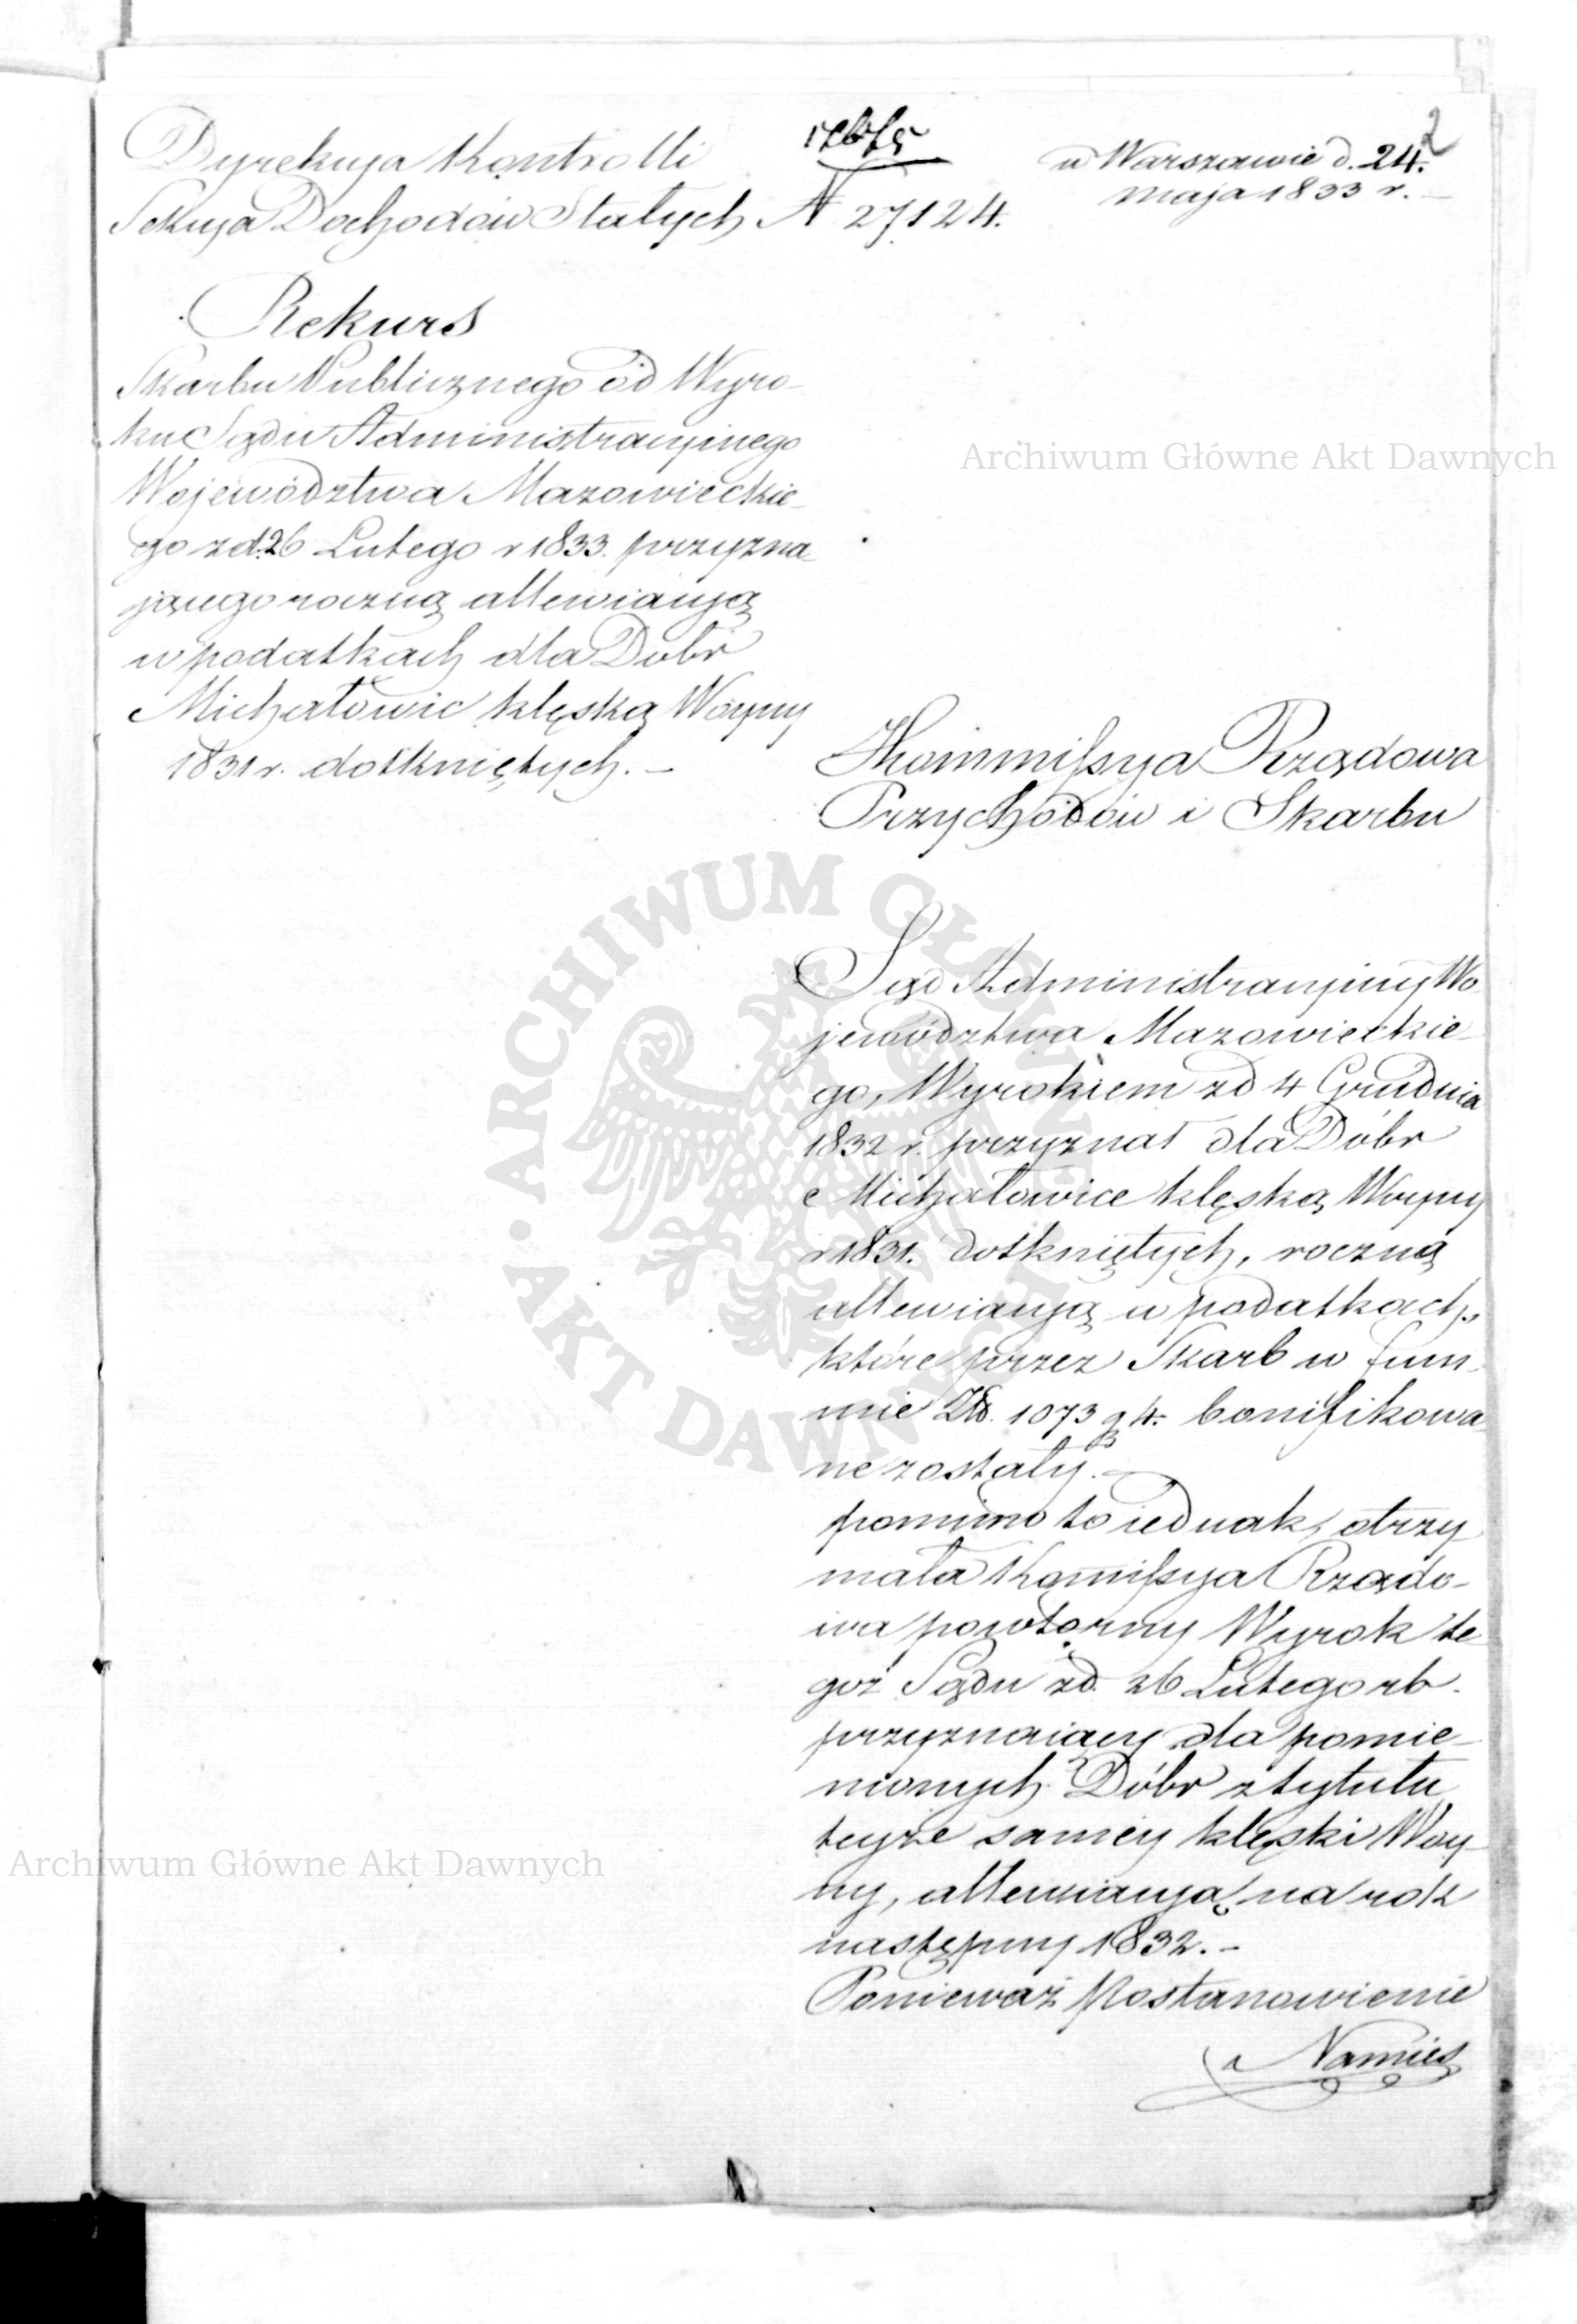 2
Dyrekcyja Kontrolli
Sekcyja Dochodów Stałych N 27124.
w Warszawie d. 24.
Maja 1833 r. –
Rekurs
Skarbu Publicznego od Wyro-
ku Sądu Administracyjnego
Województwa Mazowieckie-
go z d. 26 Lutego r 1833. przyzna-
jącego roczną allewiacyją
w podatkach dla Dóbr
Michałowic klęską Woyny
1831 r. dotkniętych. –
Kommissya Rządowa
Przychodów i Skarbu
Sąd Administracyiny Wo-
jewództwa Mazowieckie-
go, Wyrokiem z d 4 Grudnia
1832 r. przyznał dla Dóbr
Michałowice klęską Woyny
r 1831. dotkniętych, roczną
allewiacyją w podatkach,
które przez Skarb w sum-
mie Zł. 1073 g 4. bonifikowa-
ne zostały. –
pomimo to iednak, otrzy-
mała Kommissya Rządo-
wa powtórny Wyrok te-
goż Sądu z d. 26 Lutego rb.
przyznaiący dla pomie-
nionych Dóbr z tytułu
teyże saméy klęski Woy-
ny, allewiacyją na rok
następny 1832. –
Ponieważ Postanowienie
Namies
Archiwum Główne Akt Dawnych
ARCHIWUM GŁÓWNE AKT DAWNYCH
Archiwum Główne Akt Dawnych